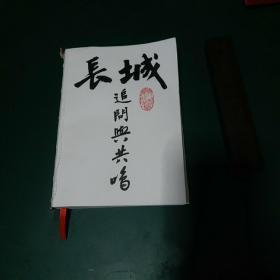 長城
追問與共鳴